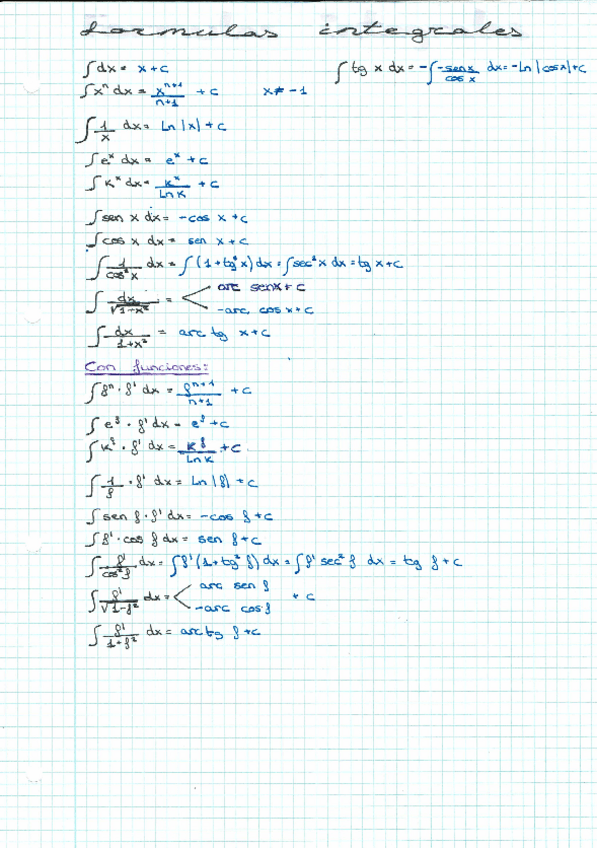 Formulas integrales
∫ dx = x + c
∫ tg x dx = -∫ -sen x / cos x dx = -Ln |cos x| + c
∫ xⁿ dx = xⁿ⁺¹ / n+1 + c x ≠ -1
∫ 1/x dx = Ln |x| + c
∫ eˣ dx = eˣ + c
∫ Kˣ dx = Kˣ / Ln K + c
∫ sen x dx = -cos x + c
∫ cos x dx = sen x + c
∫ 1/cos²x dx = ∫ (1 + tg²x) dx = ∫ sec²x dx = tg x + c
∫ dx / √1-x² = < arc sen x + c
-arc cos x + c
∫ dx / 1+x² = arc tg x + c
Con funciones:
∫ fⁿ · f' dx = fⁿ⁺¹ / n+1 + c
∫ eᶠ · f' dx = eᶠ + c
∫ Kᶠ · f' dx = Kᶠ / Ln K + c
∫ 1/f · f' dx = Ln |f| + c
∫ sen f · f' dx = -cos f + c
∫ f' · cos f dx = sen f + c
∫ f' / cos²f dx = ∫ f' (1 + tg² f) dx = ∫ f' sec² f dx = tg f + c
∫ f' / √1-f² dx = < arc sen f
-arc cos f + c
∫ f' / 1+f² dx = arc tg f + c